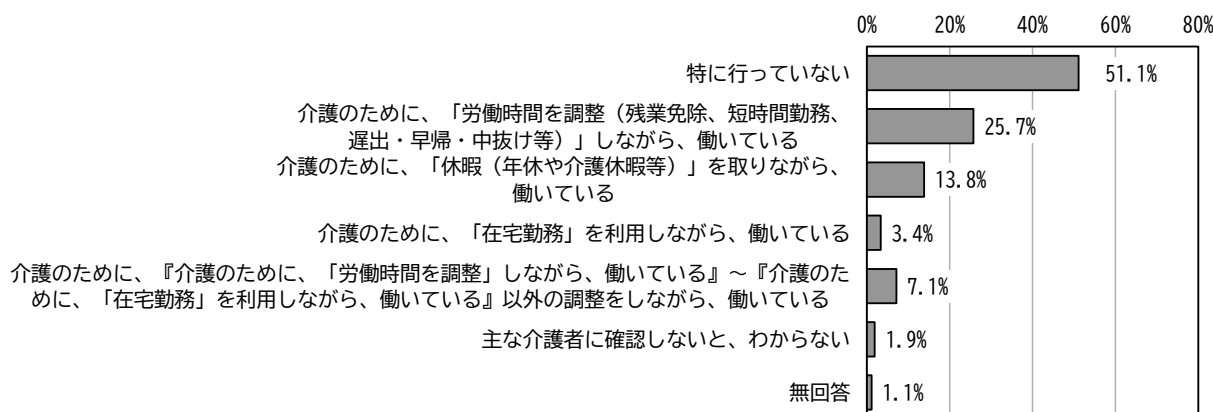 0% 20% 40% 60% 80%
特に行っていない 51.1%
介護のために、「労働時間を調整（残業免除、短時間勤務、
遅出・早帰・中抜け等）」しながら、働いている 25.7%
介護のために、「休暇（年休や介護休暇等）」を取りながら、
働いている 13.8%
介護のために、「在宅勤務」を利用しながら、働いている 3.4%
介護のために、『介護のために、「労働時間を調整」しながら、働いている』～『介護のた
めに、「在宅勤務」を利用しながら、働いている』以外の調整をしながら、働いている 7.1%
主な介護者に確認しないと、わからない 1.9%
無回答 1.1%